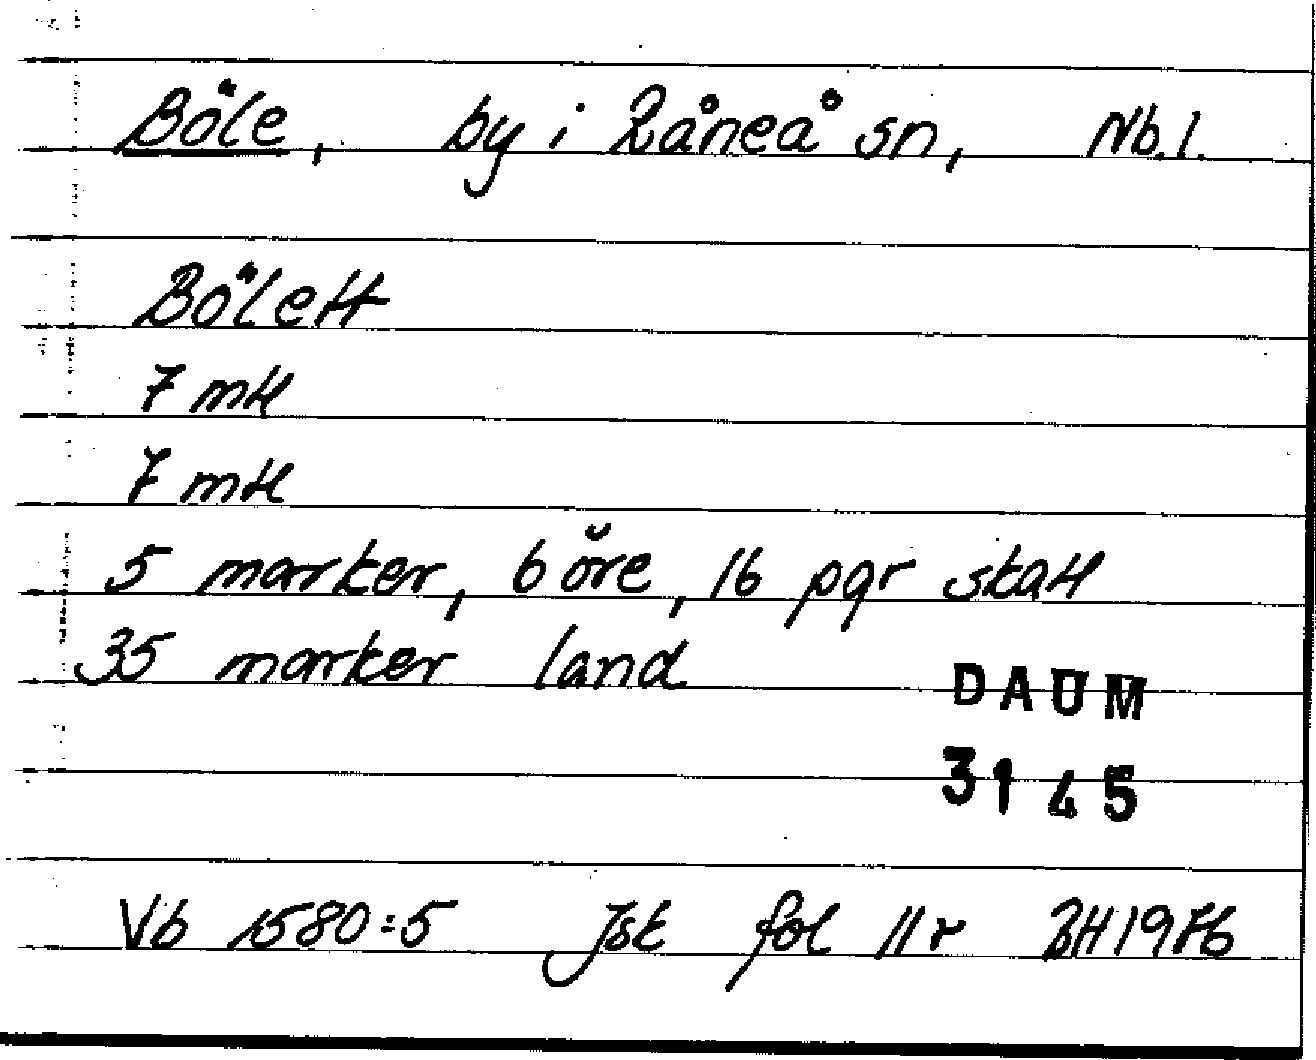 Böle, by i Råneå sn, Nb.l.
Bölett
7 mtl
7 mtl
5 marker, 6 öre, 16 pgr skatt
35 marker land
DAUM
3145
Vb 1580:5 Jsk fol 11r BH1976